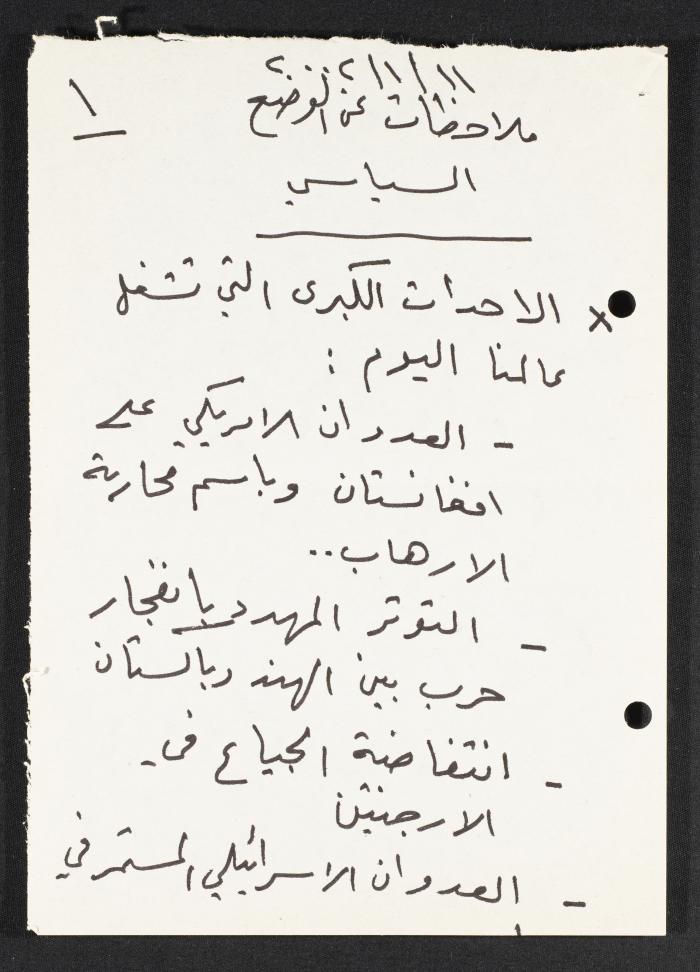 ١
ملاحظات عن الوضع
السياسي
x الاحداث الكبرى التي تشغل
عالمنا اليوم :
- العدوان الامريكي على
افغانستان وباسم محاربة
الارهاب..
- التوتر المهدد بانفجار
حرب بين الهند وباكستان
- انتفاضة الجياع في
الارجنتين
- العدوان الاسرائيلي المستمر في